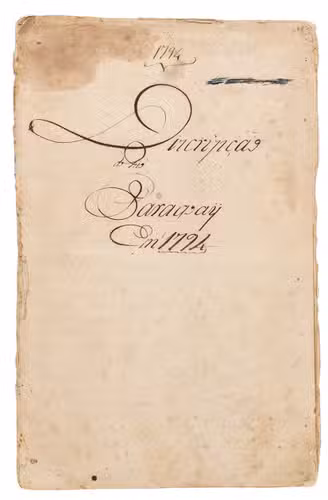 1794
Incripção
do
Paraguaÿ
Em 1794